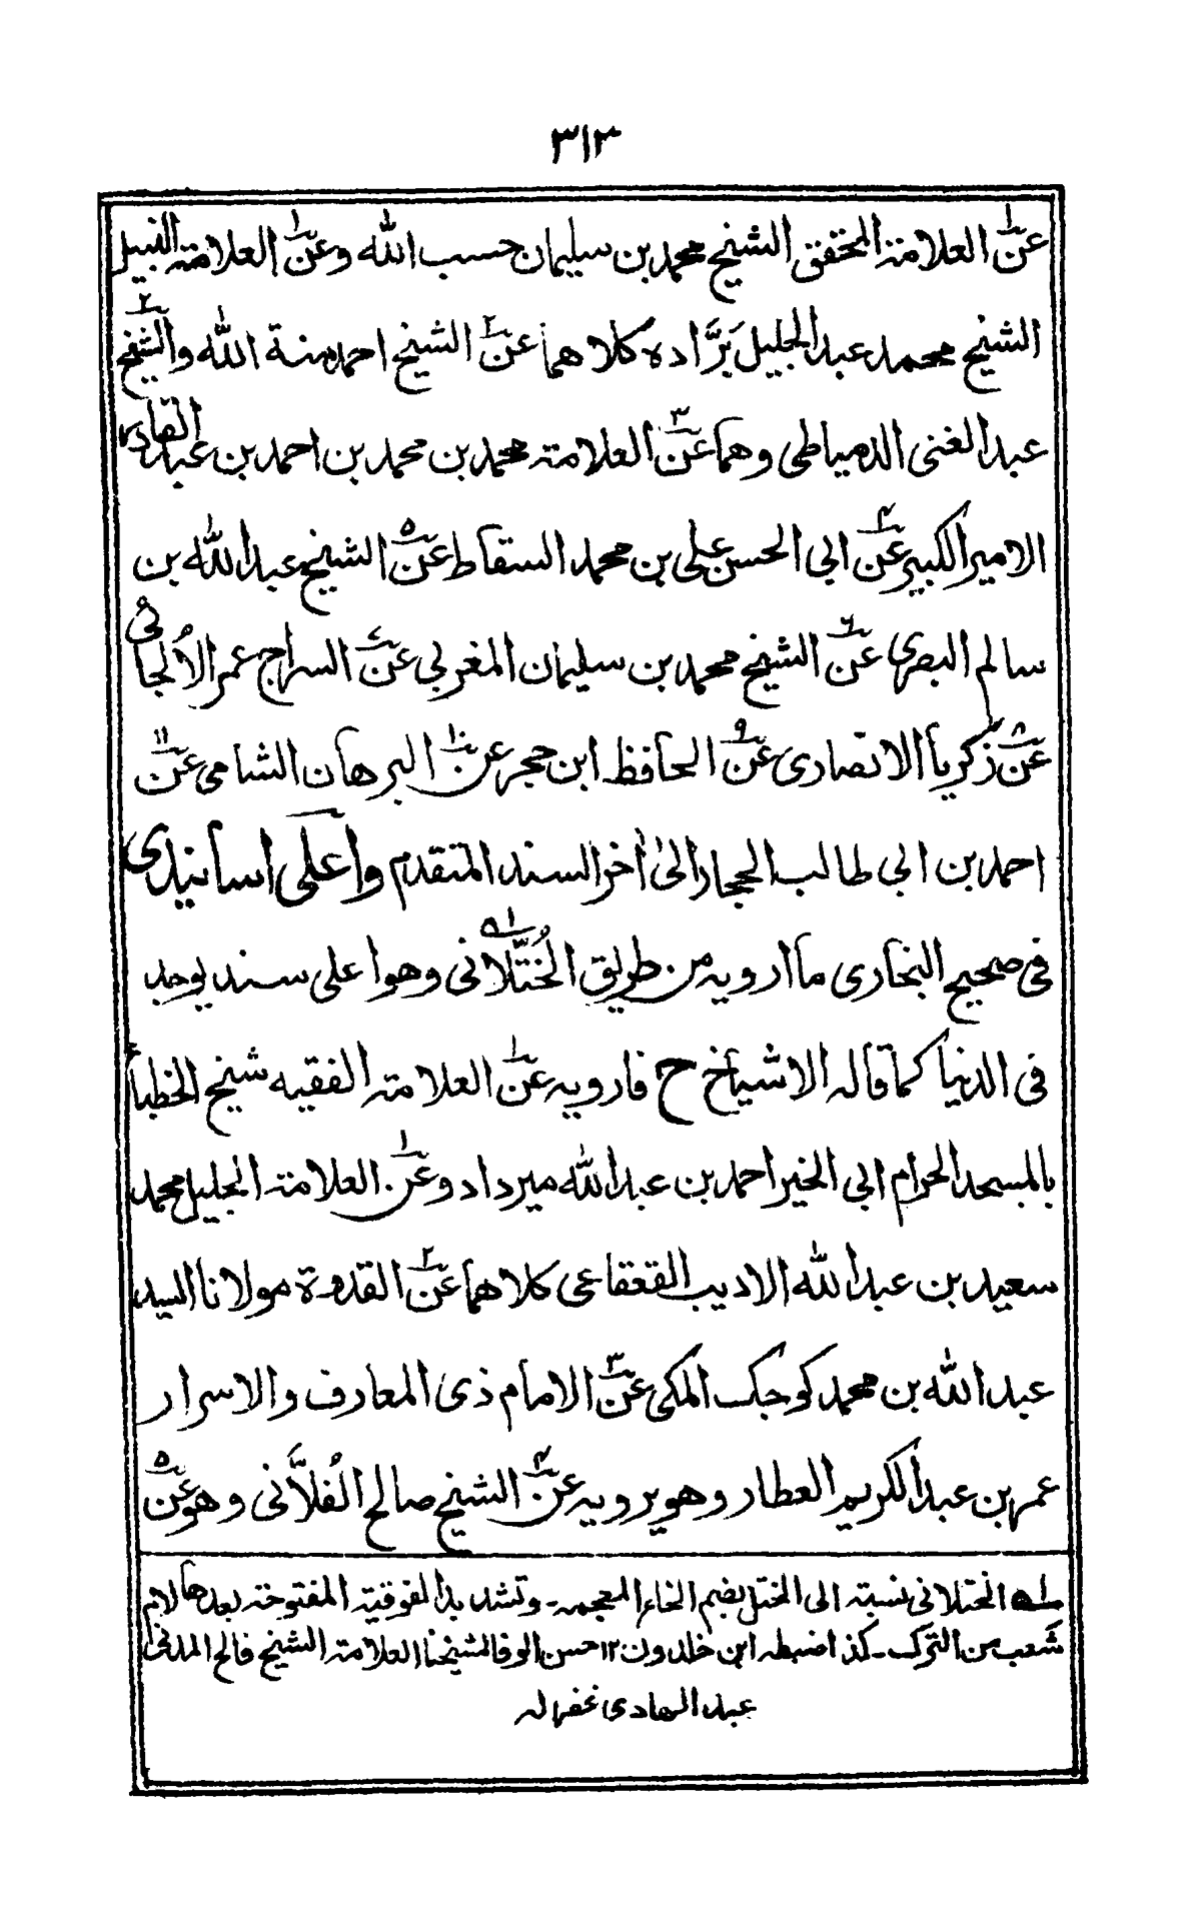 ٣١٣
عن١ العلامة المحقق الشيخ محمد بن سليمان حسب الله وعن١ العلامة النبيل
الشيخ محمد عبد الجليل بَرَّاده كلاهما عن٢ الشيخ احمد منة الله و٢الشيخ
عبد الغنى الدمياطى وهما عن٣ العلامة محمد بن محمد بن احمد بن عبد القادر
الامير الكبير عن٤ ابى الحسن على بن محمد السقاط عن٥ الشيخ عبد الله بن
سالم البصرى عن٦ الشيخ محمد بن سليمان المغربى عن٧ السراج عمر الاُلجائى
عن٨ زكريا الانصارى عن٩ الحافظ ابن حجر عن١٠ البرهان الشامى عن١١
احمد بن ابى طالب الحجار الىٰ اٰخر السند المتقدم واعلى اسانيدى
فى صحيح البخارى ما ارويه من طريق الخُتَّلانى١ه وهو اعلى سند يوجد
فى الدنيا كما قاله الاشياخ ح فارويه عن١ العلامة الفقيه شيخ الخطباء
بالمسجد الحرام ابى الخير احمد بن عبد الله ميرداد وعن١ العلامة الجليل محمد
سعيد بن عبد الله الاديب القعقاعى كلاهما عن٢ القدوة مولانا السيد
عبد الله بن محمد كوجك المكى عن٣ الامام ذى المعارف والاسرار
عمر بن عبد الكريم العطار وهو يرويه عن٤ الشيخ صالح الفُلاَّنى وهو عن٥
١ه الختلانى نسبة الى الختل بضم الخاء المعجمه۔ وتشديد الفوقية المفتوحة بعدها لام
شعب من الترك۔ كذا ضبطه ابن خلدون ١٢ حسن الوفا لمشيخنا العلامة الشيخ فالح المدنى
عبد الهادى غفر له